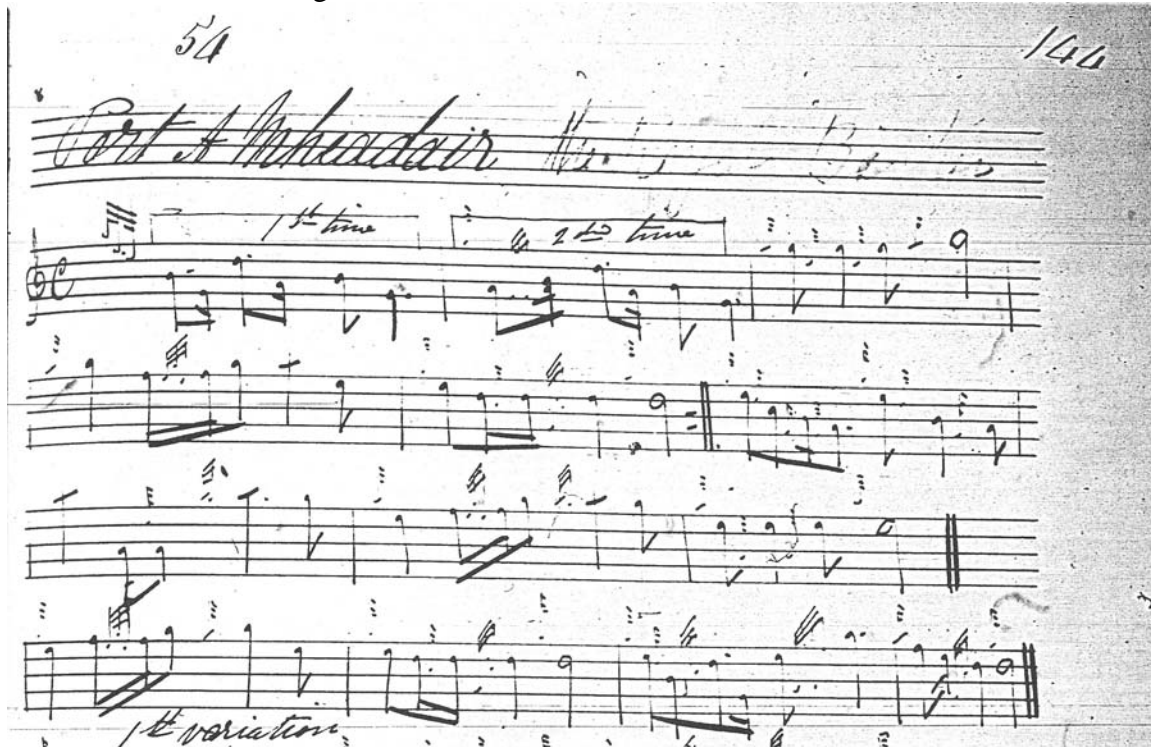 54 144
Port A Mheadair
1st time 2nd time
C
1st variation